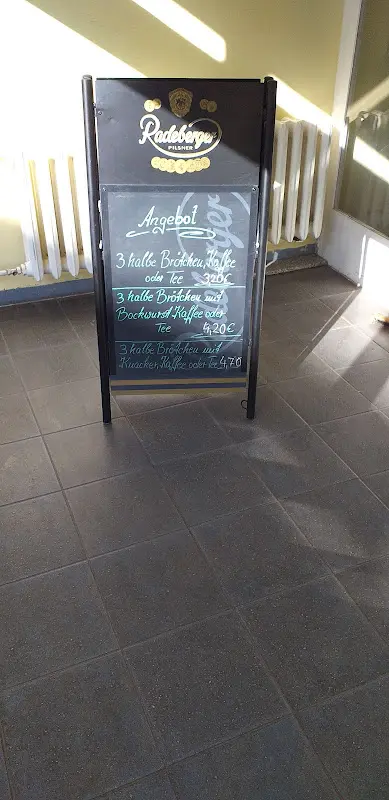 Radeberger
PILSNER
Angebot
3 halbe Brötchen, Kaffee
oder Tee 3,20€
3 halbe Brötchen mit
Bockwurst Kaffee oder
Tee 4,20€
3 halbe Brötchen mit
Knacker, Kaffee oder Tee 4,70